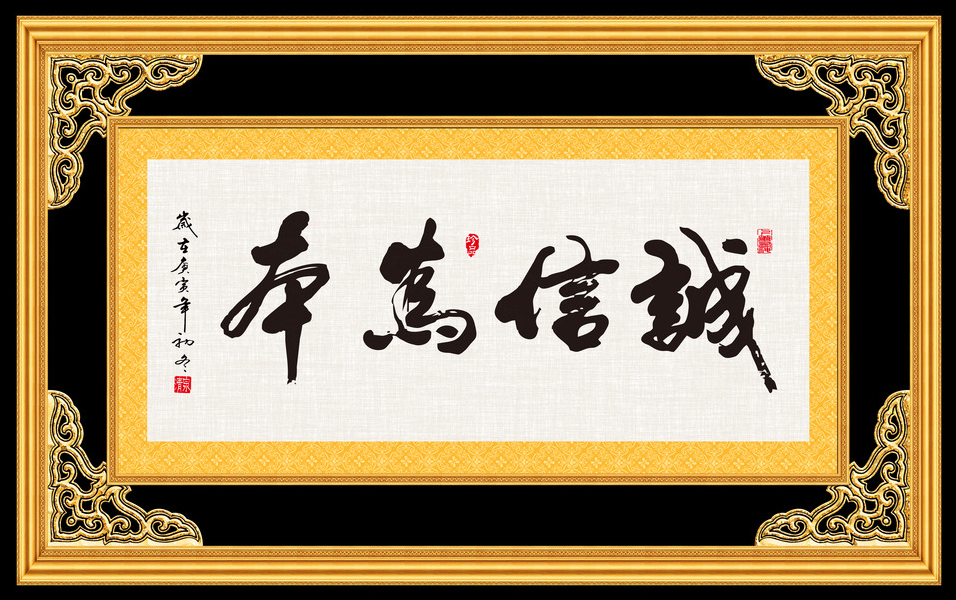 誠信為本
歲在庚寅年初冬